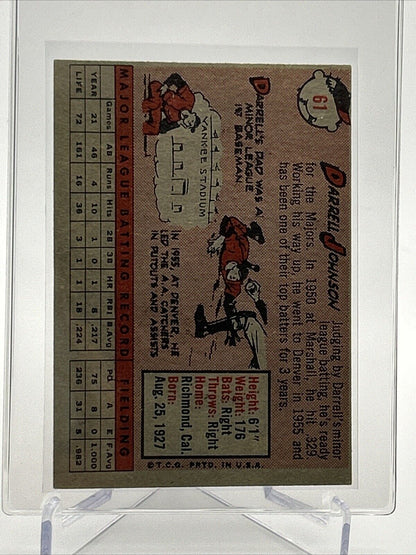 61
DARRELL JOHNSON
Judging by Darrell's minor
league batting, he's ready
for the Majors. In 1950 at Marshall, he hit .329.
Working his way up, he went to Denver in 1955 and
has been one of their top batters for 3 years.
DARRELL'S DAD WAS A
MINOR LEAGUE
1ST BASEMAN.
YANKEE STADIUM
IN 1955, AT DENVER, HE
LED THE A.A. CATCHERS
IN PUTOUTS AND ASSISTS
Height: 6'1"
Weight: 176
Bats: Right
Throws: Right
Home:
Richmond, Cal.
Born:
Aug. 25, 1927
MAJOR LEAGUE BATTING RECORD FIELDING
Games AB Runs Hits 2B 3B HR RBI B.Avg PO. A E F.Avg
YEAR 21 46 4 10 1 0 1 5 .217 75 8 0 1.000
LIFE 72 161 16 36 3 1 1 18 .224 236 31 5 .982
© T.C.G. PRTD. IN U.S.A.